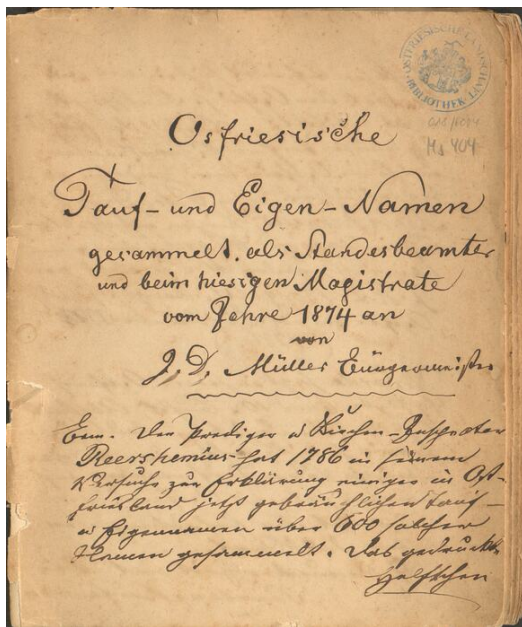 OSTFRIESISCHE LANDSCHAFT
BIBLIOTHEK
Hs 404
Osfriesische
Tauf- und Eigen-Namen
gesammelt. als Standesbeamter
und beim hiesigen Magistrate
vom Jahre 1874 an
von
J. D. Müller Bürgermeister
Bem. Der Prediger u Kirchen-Inspector
Reershemius hat 1786 in seinem
Versuche zur Erklärung einiger in Ost-
friesland jetzt gebräuchlichen Tauf-
u Eigennamen über 600 solcher
Namen gesammelt. Das gedruckte
Heftchen